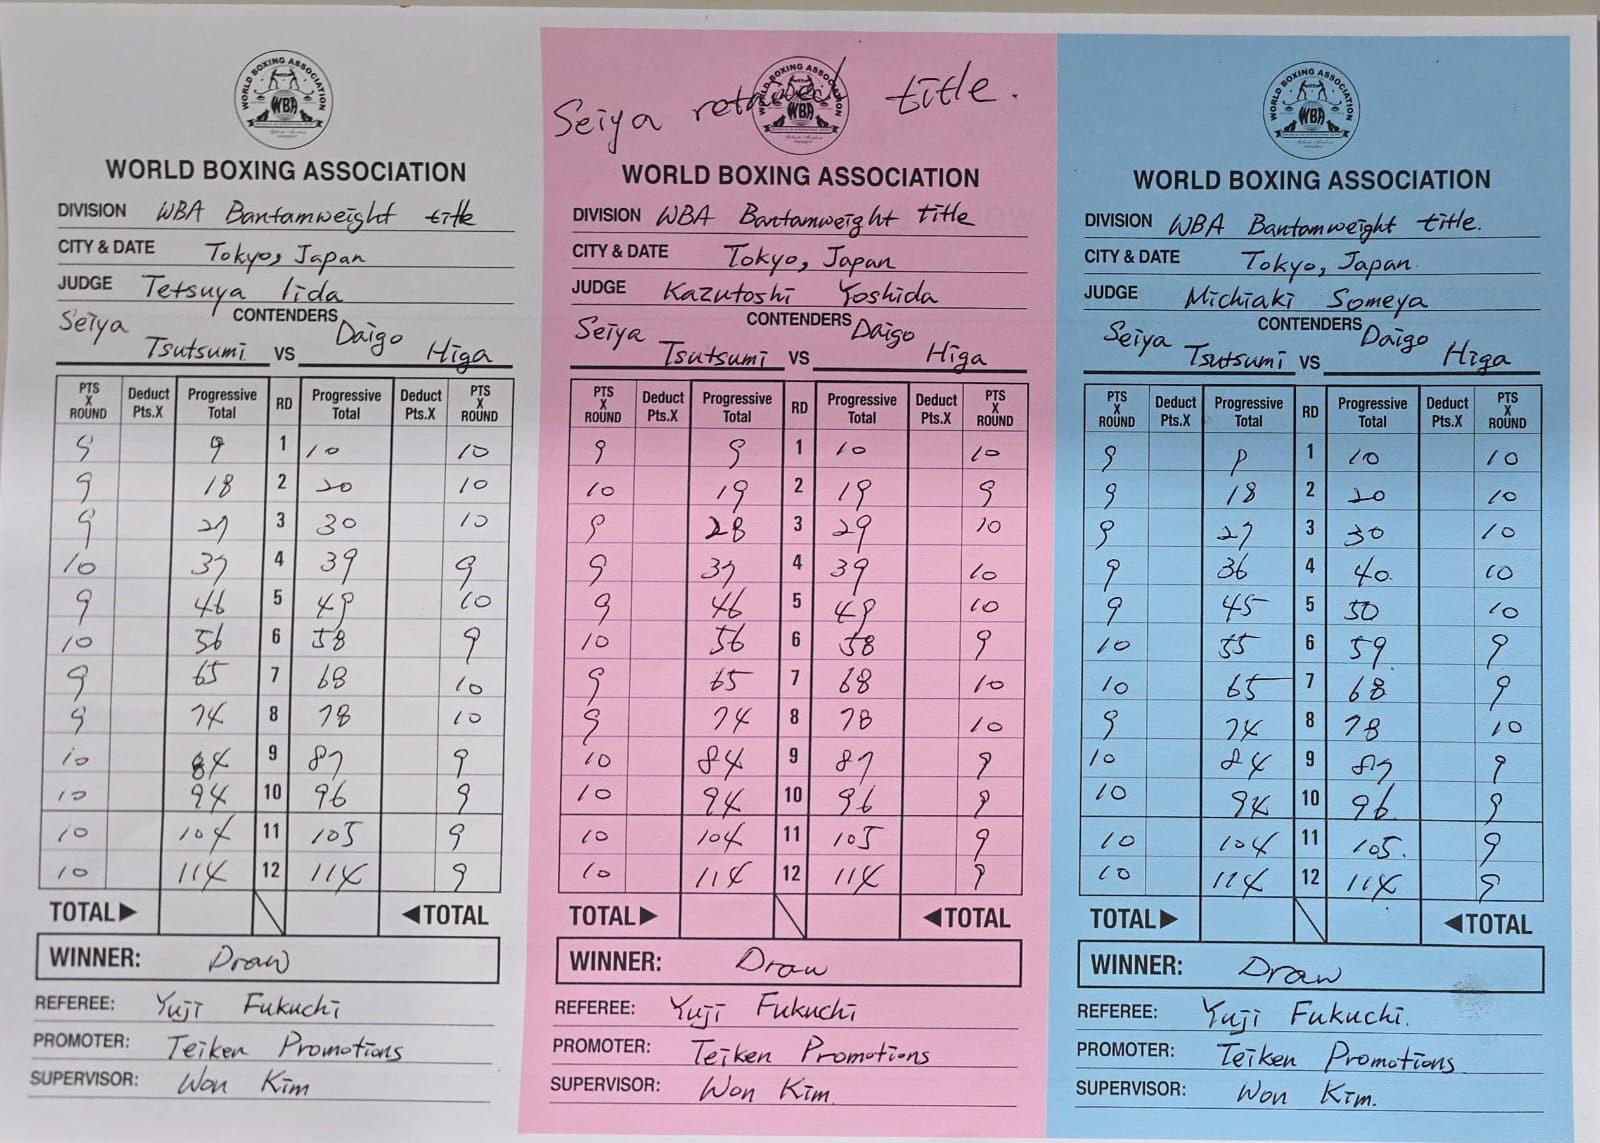 WORLD BOXING ASSOCIATION
WBA
WORLD BOXING ASSOCIATION
DIVISION WBA Bantamweight title
CITY & DATE Tokyo, Japan
JUDGE Tetsuya Iida
CONTENDERS
Seiya Tsutsumi VS Daigo Higa
PTS X ROUND Deduct Pts.X Progressive Total RD Progressive Total Deduct Pts.X PTS X ROUND
9 9 1 10 10
9 18 2 20 10
9 27 3 30 10
10 37 4 39 9
9 46 5 49 10
10 56 6 58 9
9 65 7 68 10
9 74 8 78 10
10 84 9 87 9
10 94 10 96 9
10 104 11 105 9
10 114 12 114 9
TOTAL▶ ◀TOTAL
WINNER: Draw
REFEREE: Yuji Fukuchi
PROMOTER: Teiken Promotions
SUPERVISOR: Won Kim
Seiya retained title.
WORLD BOXING ASSOCIATION
WBA
WORLD BOXING ASSOCIATION
DIVISION WBA Bantamweight title
CITY & DATE Tokyo, Japan
JUDGE Kazutoshi Yoshida
CONTENDERS
Seiya Tsutsumi VS Daigo Higa
PTS X ROUND Deduct Pts.X Progressive Total RD Progressive Total Deduct Pts.X PTS X ROUND
9 9 1 10 10
10 19 2 19 9
9 28 3 29 10
9 37 4 39 10
9 46 5 49 10
10 56 6 58 9
9 65 7 68 10
9 74 8 78 10
10 84 9 87 9
10 94 10 96 9
10 104 11 105 9
10 114 12 114 9
TOTAL▶ ◀TOTAL
WINNER: Draw
REFEREE: Yuji Fukuchi
PROMOTER: Teiken Promotions
SUPERVISOR: Won Kim.
WORLD BOXING ASSOCIATION
WBA
WORLD BOXING ASSOCIATION
DIVISION WBA Bantamweight title.
CITY & DATE Tokyo, Japan.
JUDGE Michiaki Someya
CONTENDERS
Seiya Tsutsumi VS Daigo Higa
PTS X ROUND Deduct Pts.X Progressive Total RD Progressive Total Deduct Pts.X PTS X ROUND
9 9 1 10 10
9 18 2 20 10
9 27 3 30 10
9 36 4 40 10
9 45 5 50 10
10 55 6 59 9
10 65 7 68 9
9 74 8 78 10
10 84 9 87 9
10 94 10 96 9
10 104 11 105. 9
10 114 12 114 9
TOTAL▶ ◀TOTAL
WINNER: Draw
REFEREE: Yuji Fukuchi.
PROMOTER: Teiken Promotions
SUPERVISOR: Won Kim.